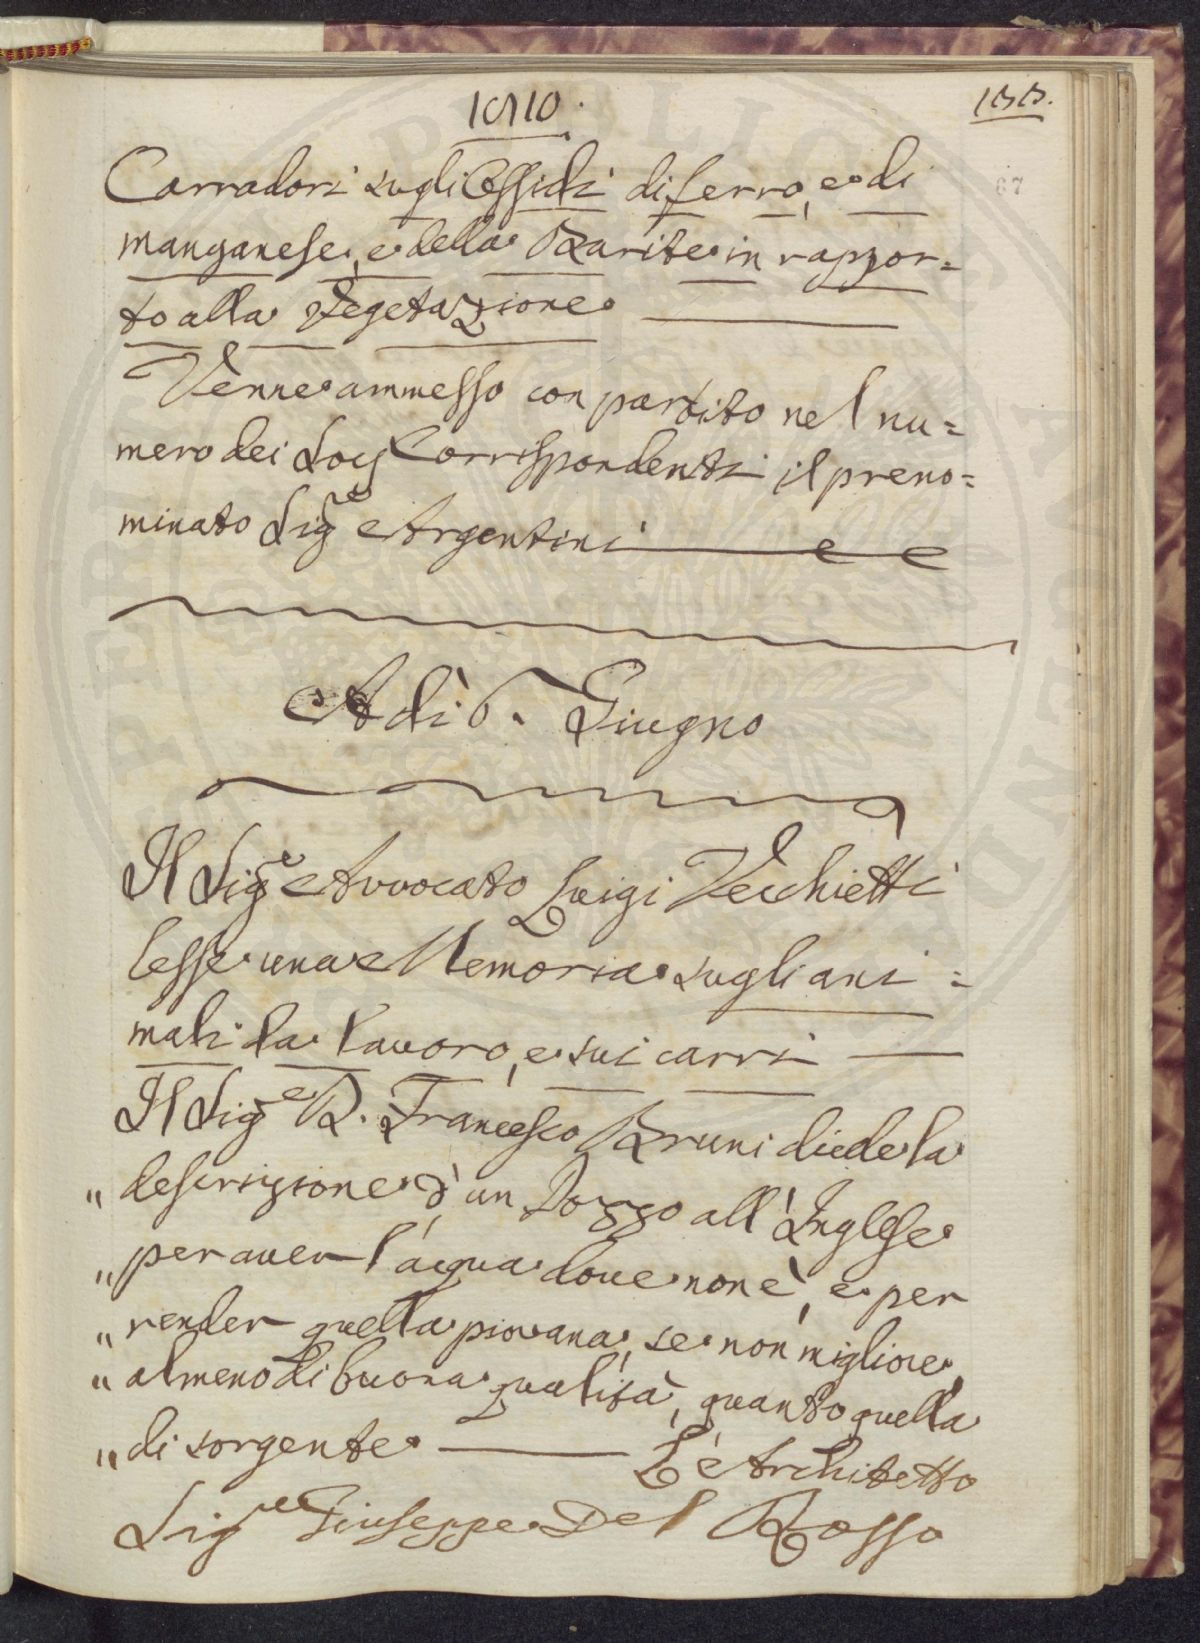 1810.
133.
67
Carradori sugli Ossidi di ferro, e di
manganese, e della Barite in rappor=
to alla Vegetazione
Venne ammesso con partito nel nu=
mero dei Socj Corrispondenti il preno=
minato Sig.e Argentini
Adì 6. Giugno
Il Sig.e Avvocato Luigi Vecchietti
lesse una Memoria sugli ani=
mali da lavoro, e sui carri
Il Sig.e D. Francesco Bruni diede la
" descrizione d'un Pozzo all'Inglese
" per aver l'acqua dove non è, e per
" render quella piovana, se non migliore,
" almeno di buona qualità, quanto quella
" di sorgente L'Architetto
Sig.re Giuseppe Del Rosso